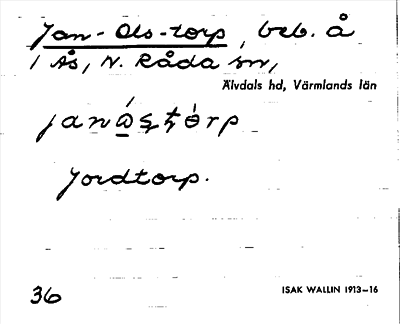 Jan-Ols-torp, beb. å
1 Ås, N. Råda sn,
Älvdals hd, Värmlands län
Jordtorp.
36
ISAK WALLIN 1913–16